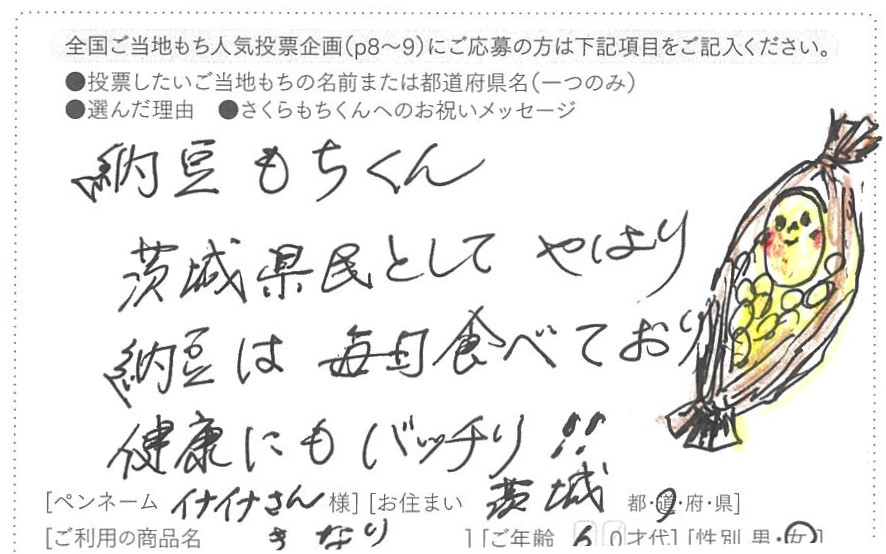 全国ご当地もち人気投票企画(p8〜9)にご応募の方は下記項目をご記入ください。
●投票したいご当地もちの名前または都道府県名(一つのみ)
●選んだ理由　●さくらもちくんへのお祝いメッセージ
納豆もちくん
茨城県民として やはり
納豆は 毎日食べており
健康にもバッチリ!!
[ペンネーム イナイナさん 様] [お住まい 茨城 都・道・府・県]
[ご利用の商品名 きなり ] [ご年齢 60才代] [性別 男・女]